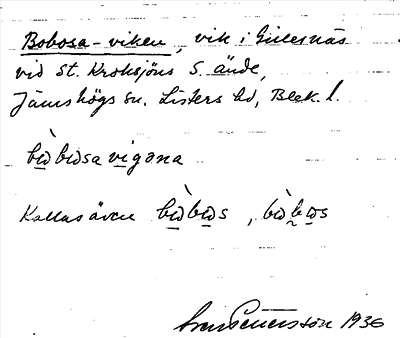 Bobosa-viken, vik i Gillesnäs
vid St. Kroksjöns S. ände,
Jämshögs sn. Listers hd, Blek. l.
bὼbωsa vigǝna
Kallas även bὼbωs, bὼbωs
Sven Pettersson 1936